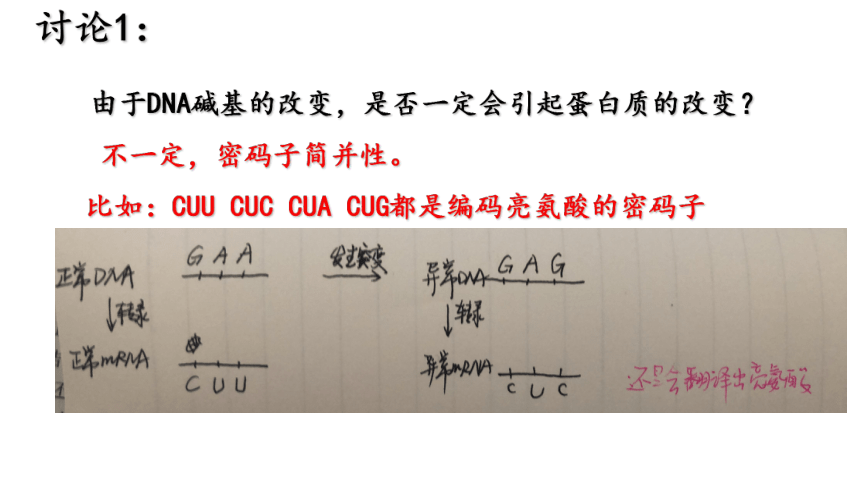 讨论1：
由于DNA碱基的改变，是否一定会引起蛋白质的改变？
不一定，密码子简并性。
比如：CUU CUC CUA CUG都是编码亮氨酸的密码子
G A A 发生突变 G A G
正常DNA 异常DNA
转录 转录
正常mRNA 异常mRNA
C U U C U C
还是会翻译出亮氨酸